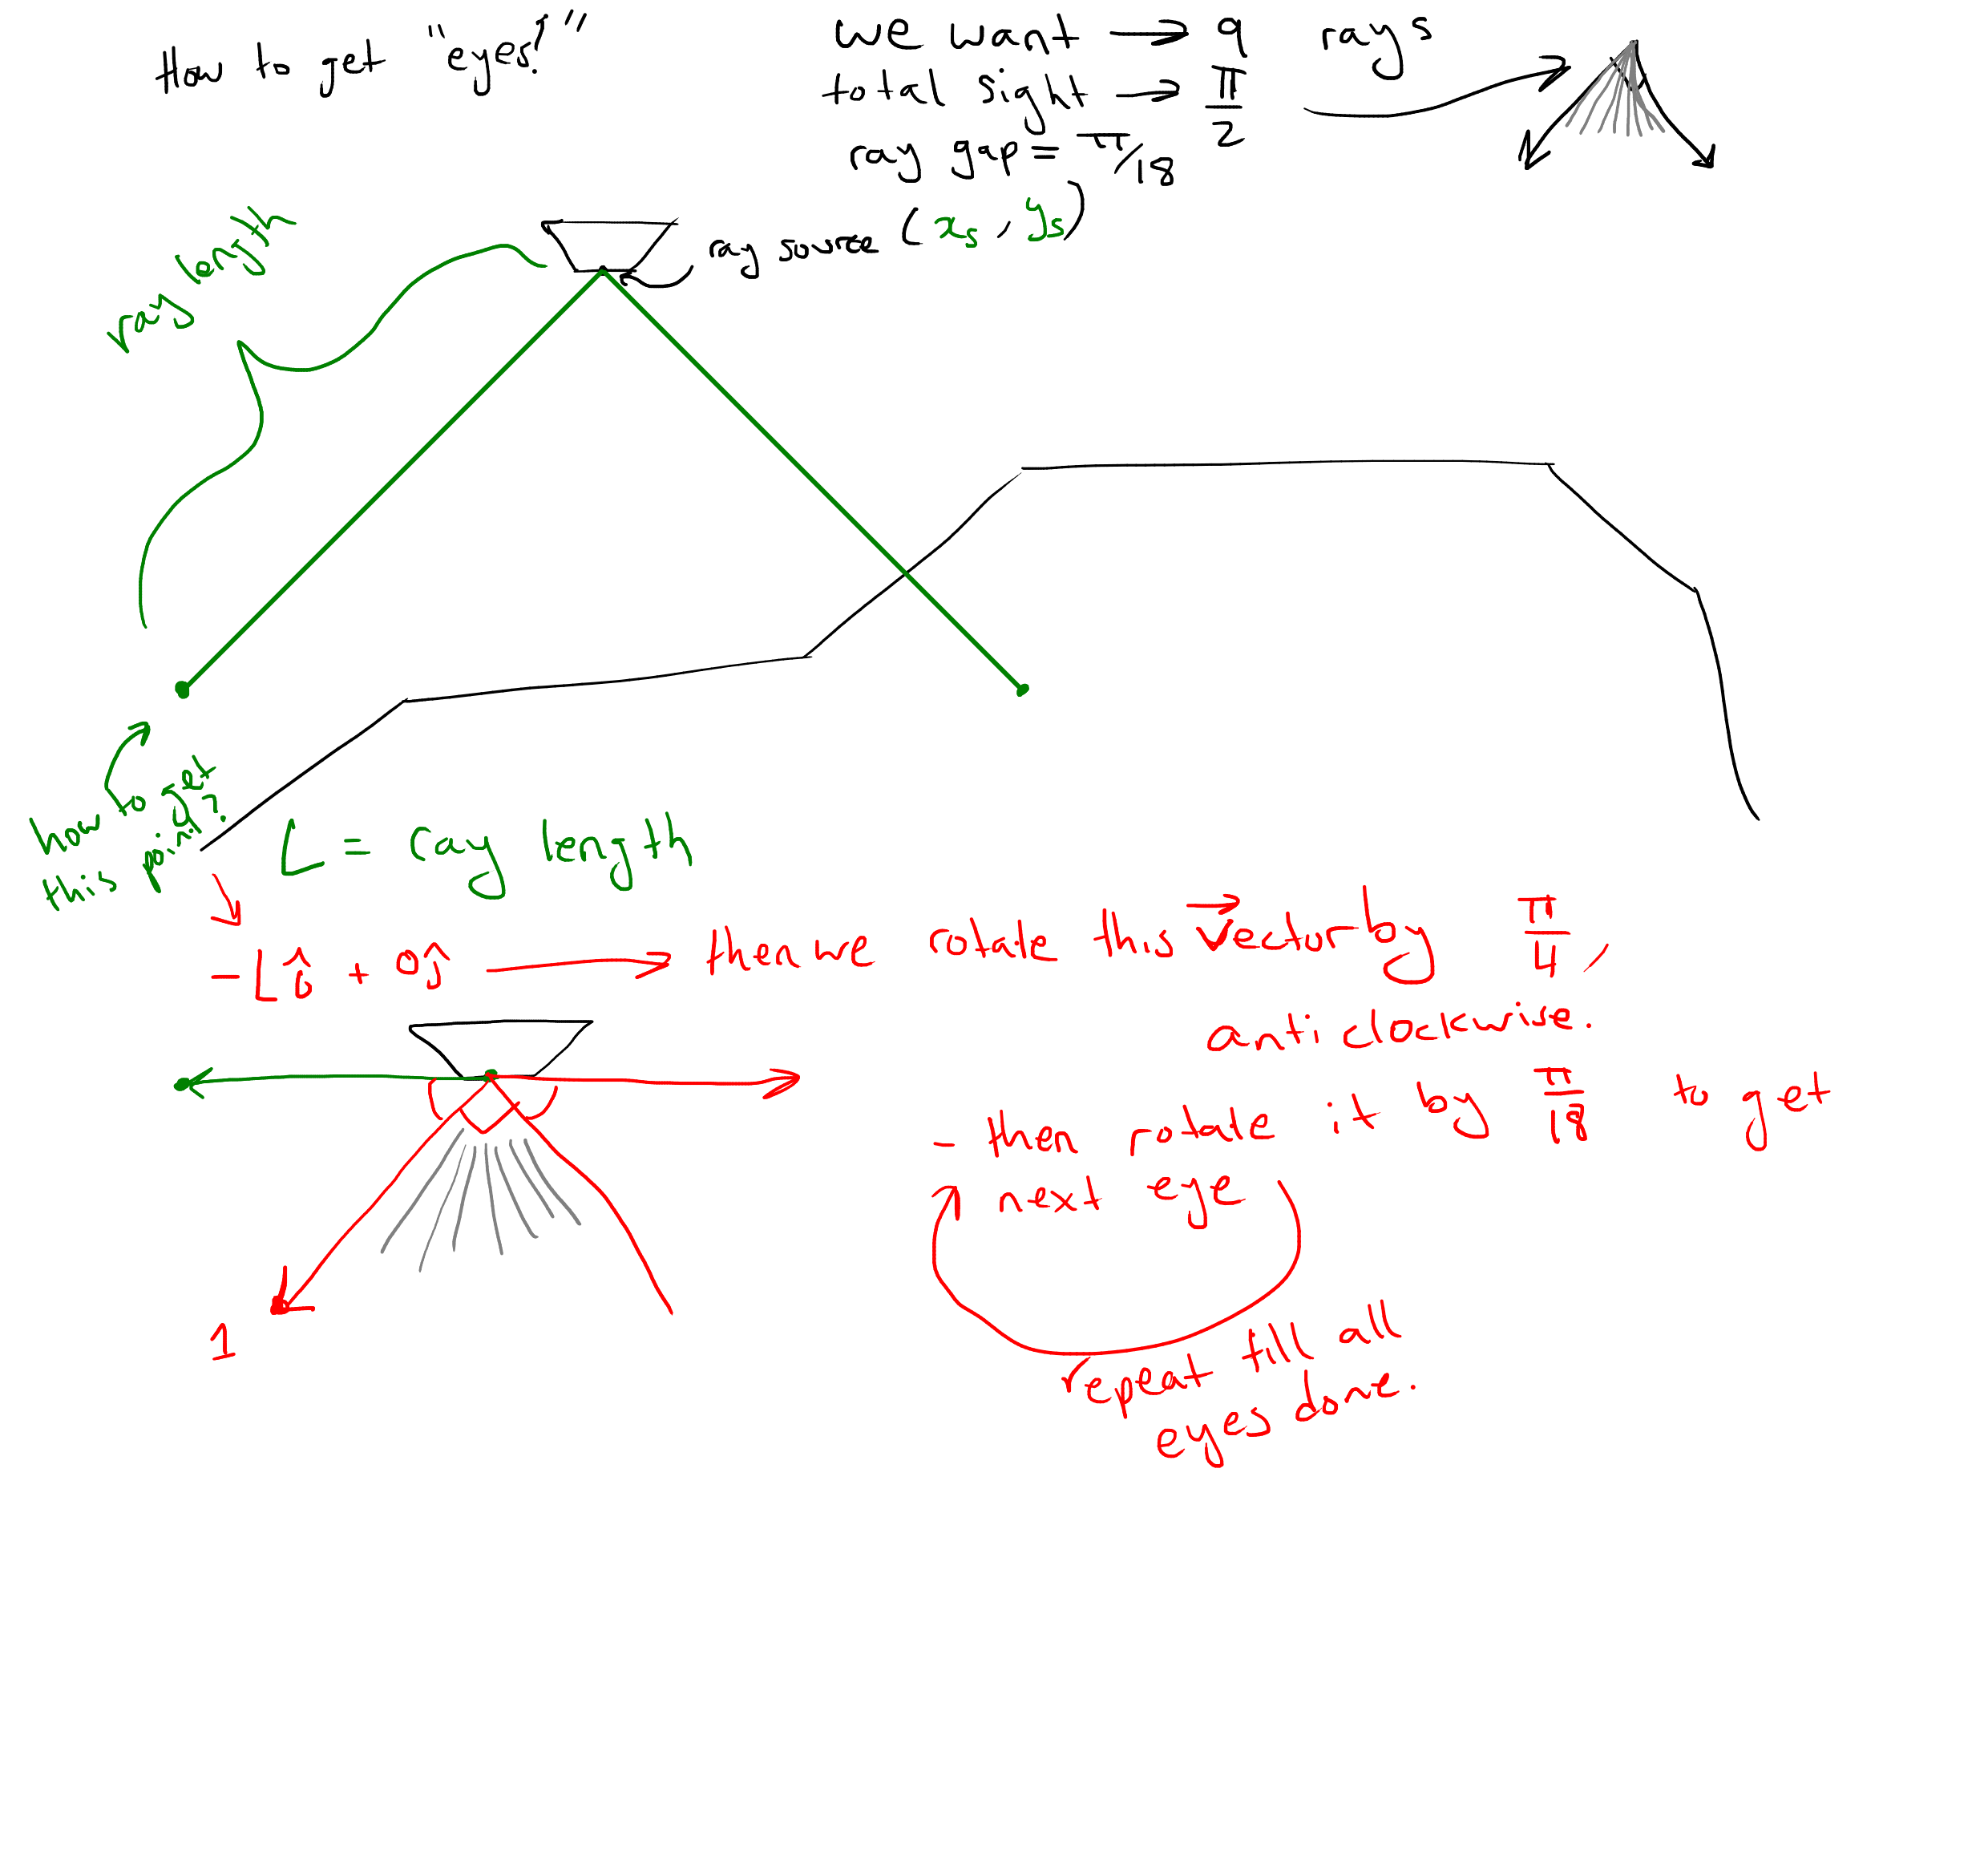 How to get "eyes!"
we want → 9 rays
total sight → π/2
ray gap = π/18
ray source (xs, ys)
ray length
how to get
this point?
L = ray length
-Lî + 0ĵ → then we rotate this vector by π/4,
anticlockwise.
- then rotate it by π/18 to get
next eye
1
repeat till all
eyes done.